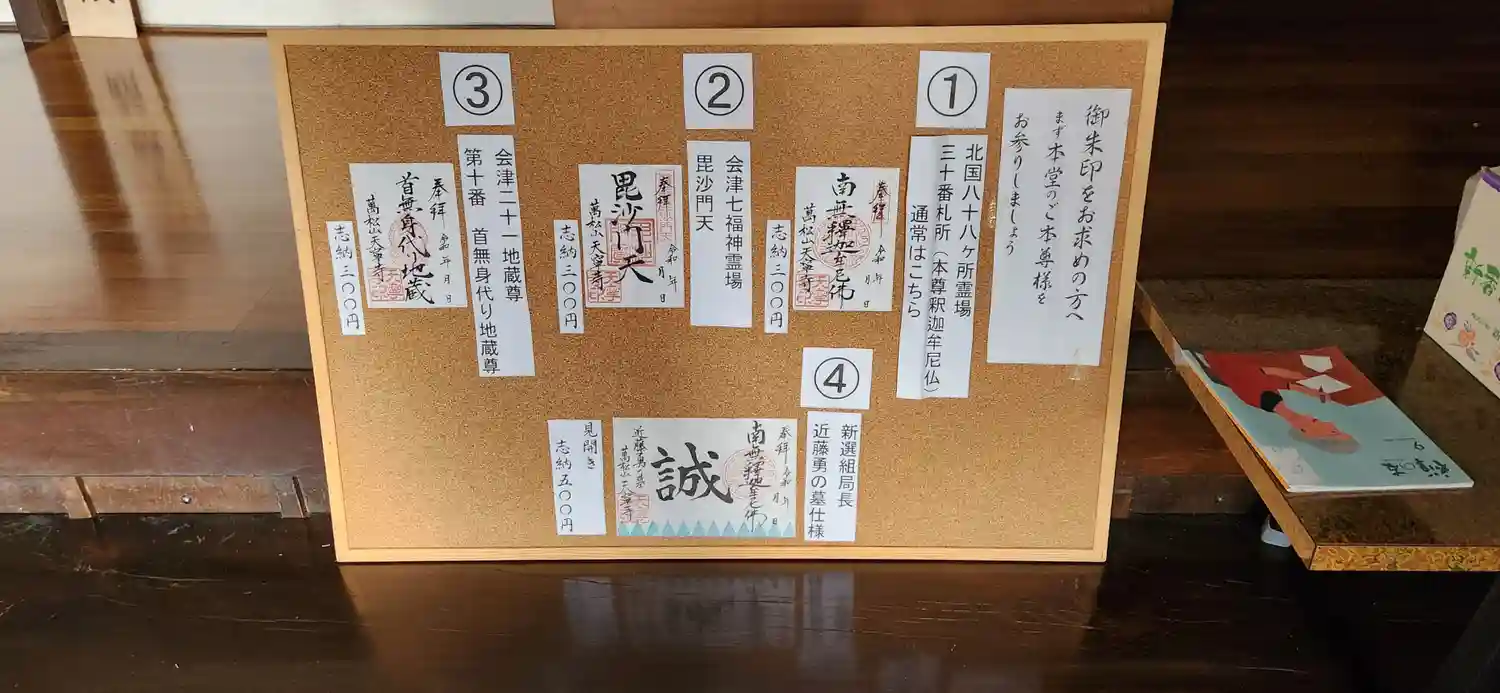 御朱印をお求めの方へ
まず本堂のご本尊様を
お参りしましょう
①
北国八十八ヶ所霊場
三十番札所(本尊釈迦牟尼仏)
通常はこちら
奉拝
令和 年 月 日
南無釋迦牟尼佛
萬松山天寧寺
志納三〇〇円
②
会津七福神霊場
毘沙門天
奉拝
令和 年 月 日
毘沙門天
萬松山天寧寺
志納三〇〇円
③
会津二十一地蔵尊
第十番 首無身代り地蔵尊
奉拝
令和 年 月 日
首無身代り地蔵
萬松山天寧寺
志納三〇〇円
④
新選組局長
近藤勇の墓仕様
奉拝
令和 年 月 日
南無釋迦牟尼佛
誠
近藤勇の墓
萬松山天寧寺
見開き
志納五〇〇円